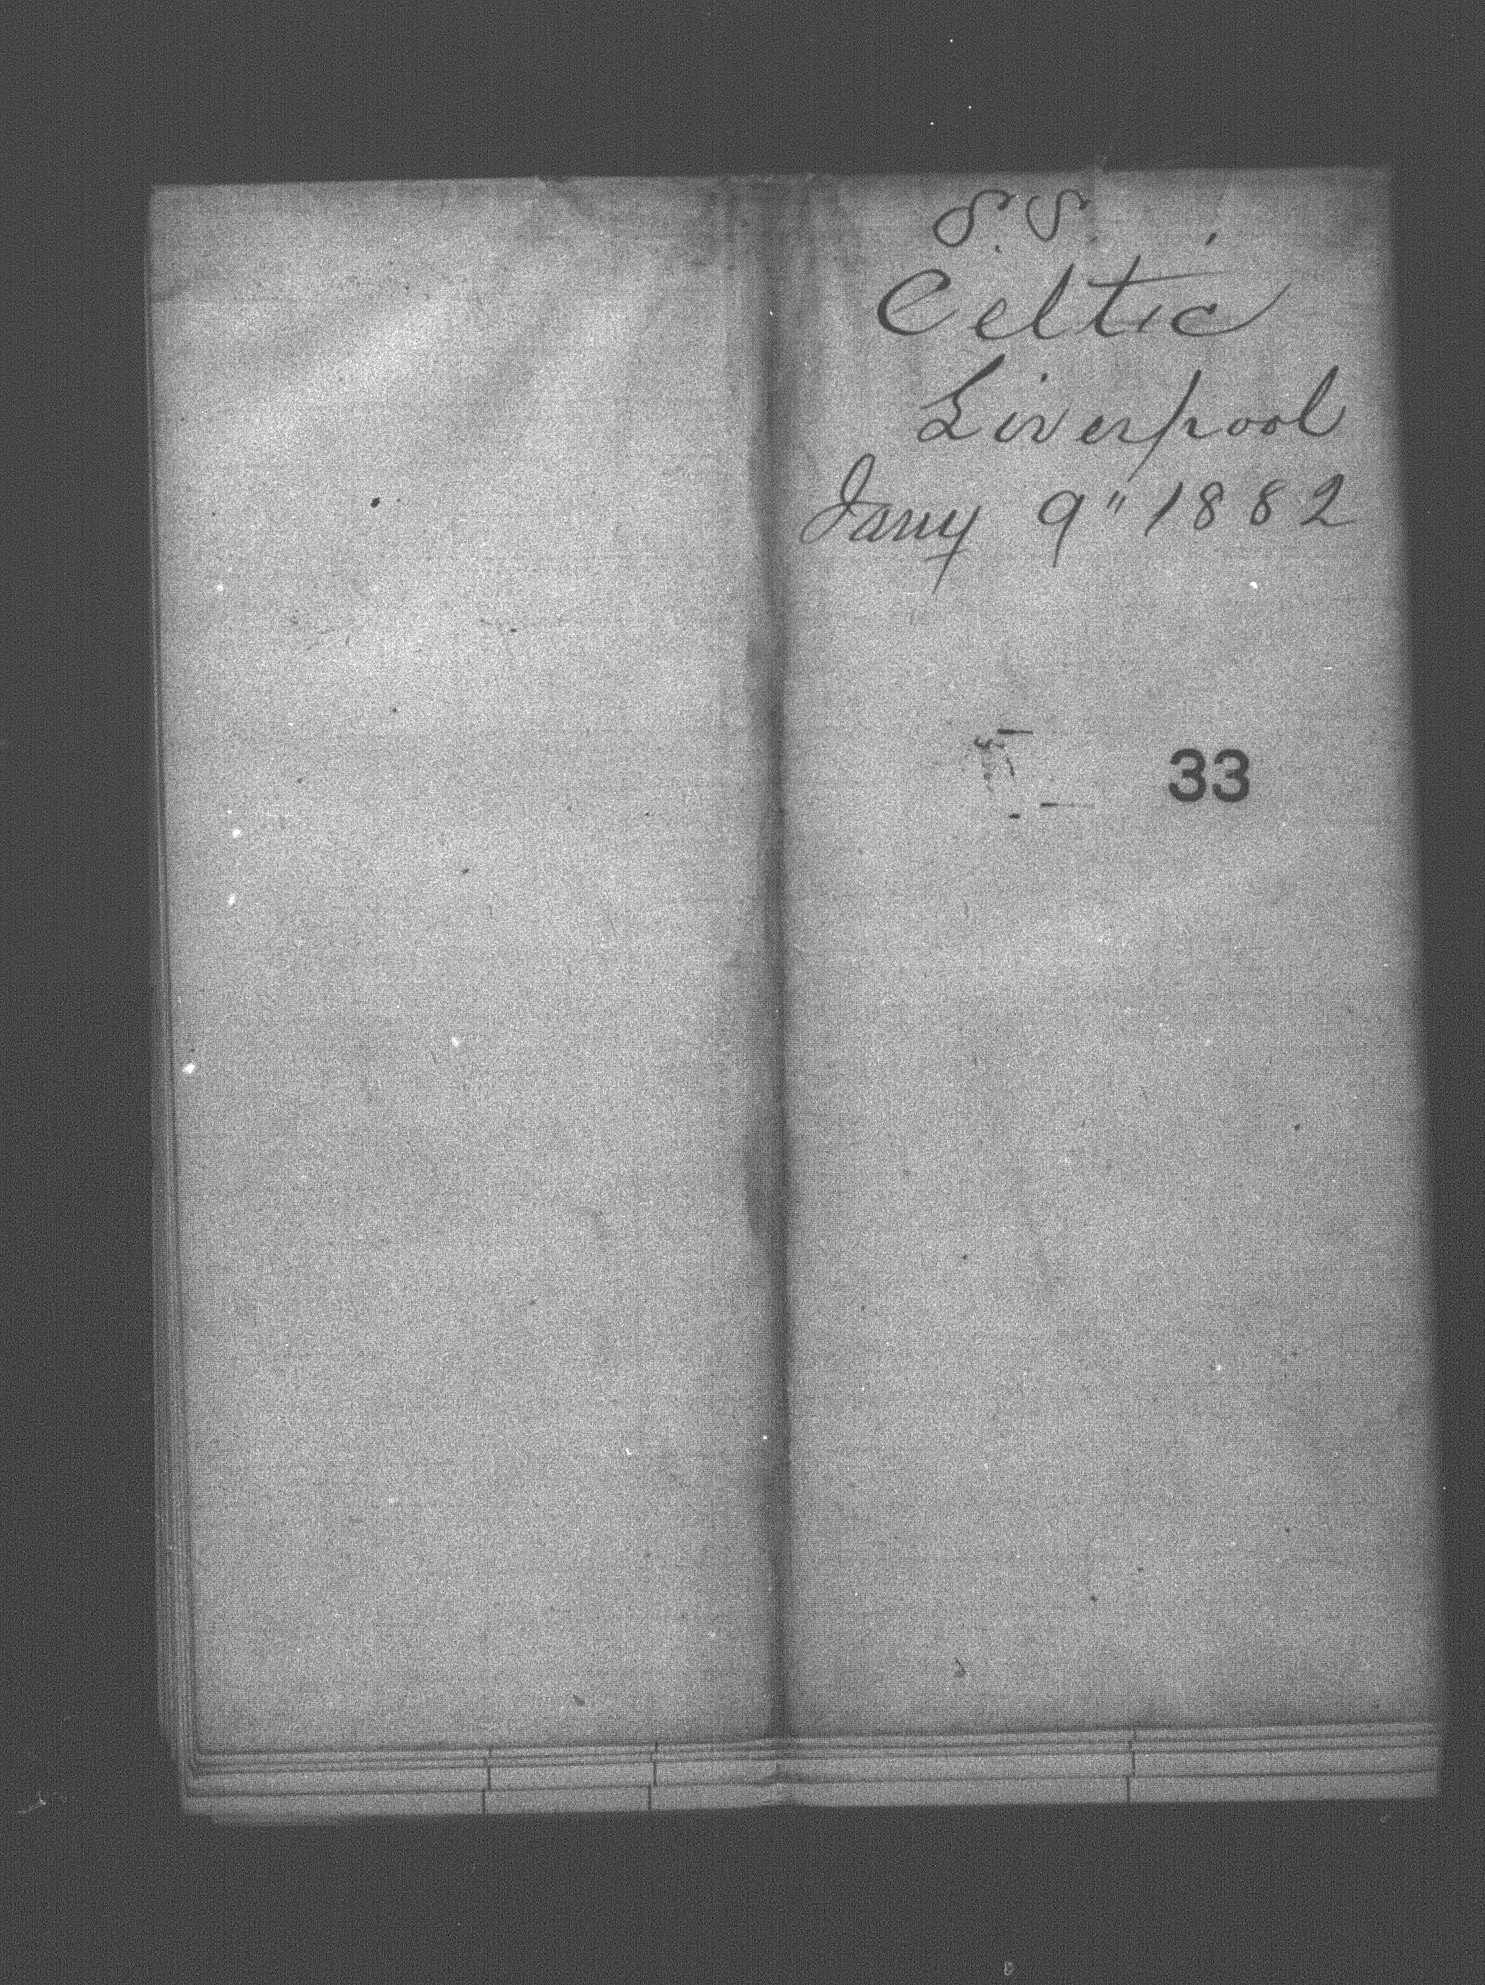 S.S.
Celtic
Liverpool
Jany 9" 1882
33